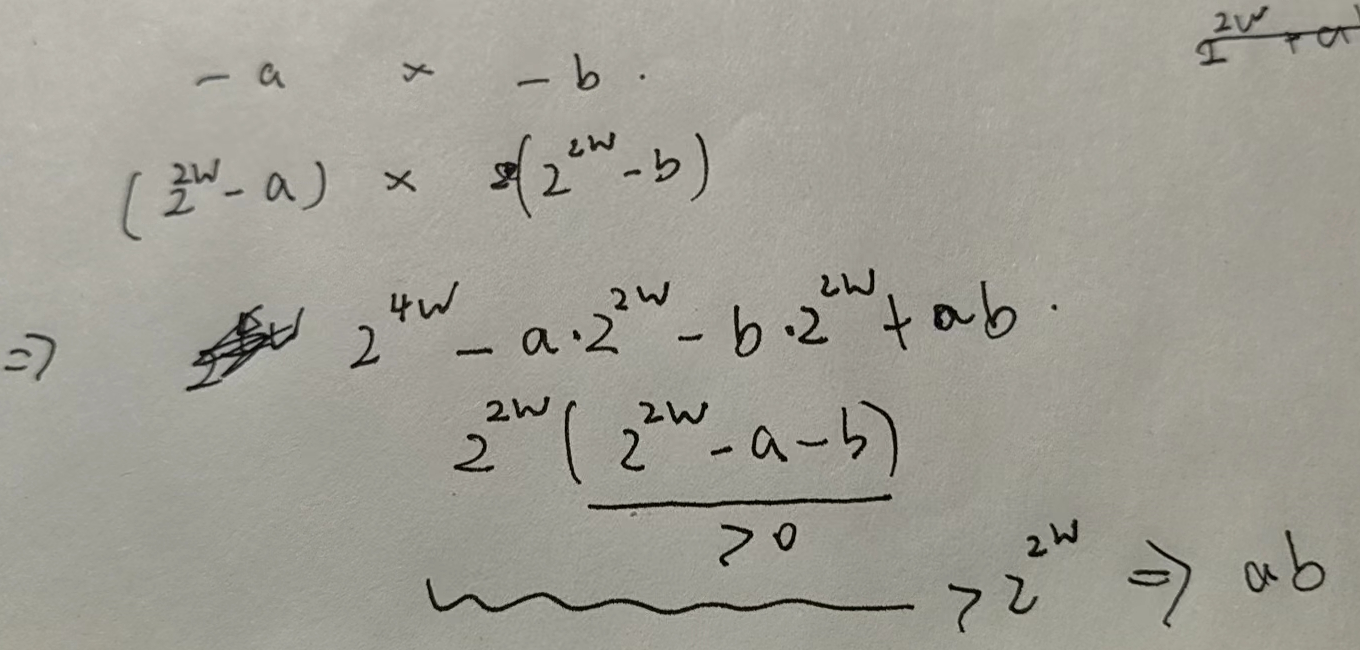 2^{2W} + a
-a × -b.
(2^{2W} - a) × (2^{2W} - b)
⇒ 2^{4W} - a·2^{2W} - b·2^{2W} + ab.
2^{2W}(2^{2W} - a - b)
>0
>2^{2W} ⇒ ab